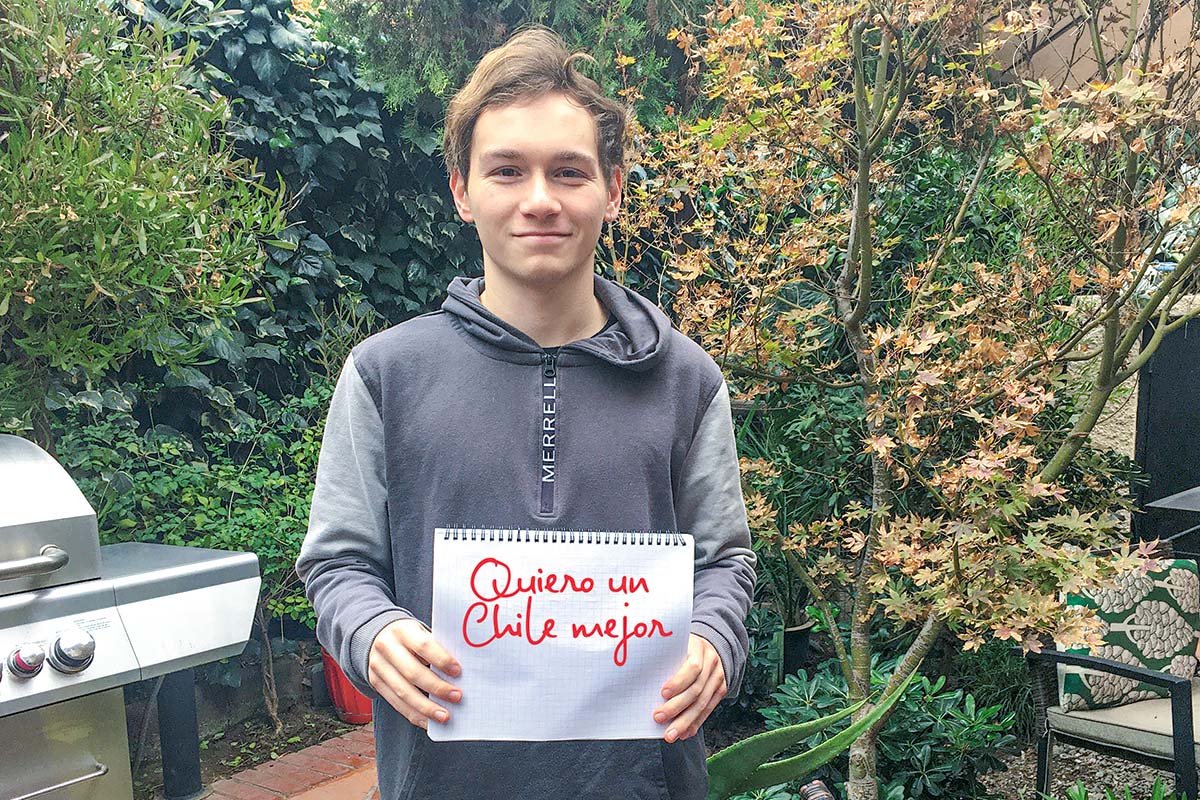 MERRELL
Quiero un
Chile mejor